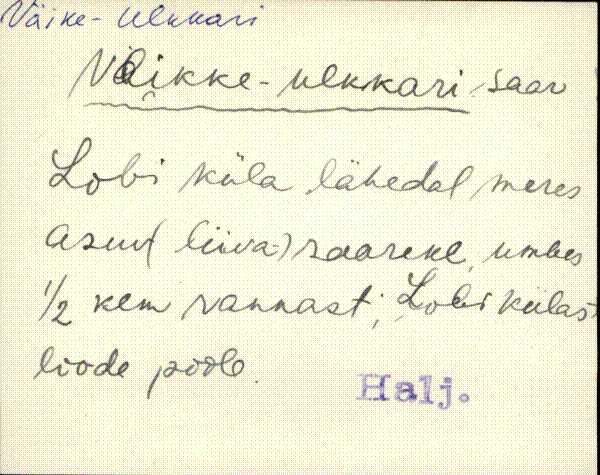 Väike-Ulkkari
Väikke-Ulkkari saar
Lobi küla lähedal meres
asuv (liiva-) saareke, umbes
1/2 klm rannast; Lobi külast
loode poole.
Halj.